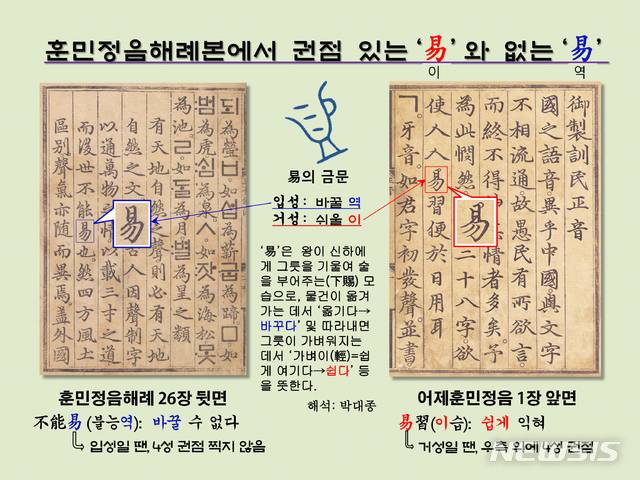 훈민정음해례본에서 권점 있는 ‘易’와 없는 ‘易’
이 역
되為螢。ㅂ。如섭為薪。굽為蹄。ㅁ。如
범為虎。심為泉。ㅅ。如잣為海松。못
為池。ㄹ。如ᄃᆞᆯ為月。별為星之類
有天地自然之聲則必有天地
自然之文。 古人因聲制字
以通萬物之 以載三才之道
而後世不能易也。然四方風土
區別聲氣亦隨而異焉。蓋外國
易
易의 금문
입성: 바꿀 역
거성: 쉬울 이
‘易’은 왕이 신하에
게 그릇을 기울여 술
을 부어주는(下賜) 모
습으로, 물건이 옮겨
가는 데서 ‘옮기다→
바꾸다’ 및 따라내면
그릇이 가벼워지는
데서 ‘가벼이(輕)=쉽
게 여기다→쉽다’ 등
을 뜻한다.
해석: 박대종
御製訓民正音
國之語音。異乎中國。與文字
不相流通。故愚民。有所欲言
而終不得 情者。多矣。予
為此憫然。 二十八字。欲
使人人易習。便於日用耳
ㄱ。牙音。如君字初發聲並書
易
훈민정음해례 26장 뒷면
不能易 (불능역): 바꿀 수 없다
입성일 땐, 4성 권점 찍지 않음
어제훈민정음 1장 앞면
易習(이습): 쉽게 익혀
거성일 땐, 우측 위에 4성 권점
NEWSIS